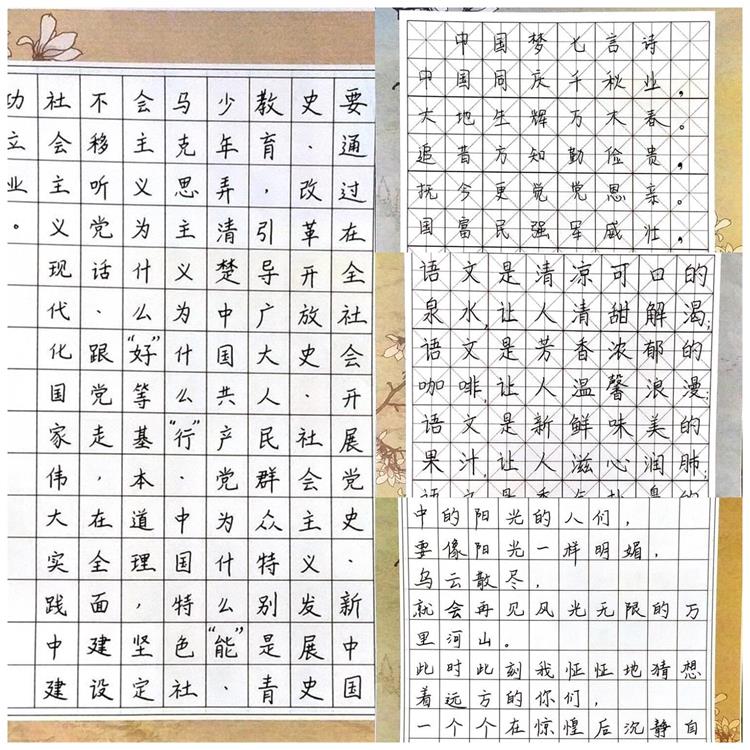 要通过在全社会开展党史·新中国
史·改革开放史·社会主义发展史
教育，引导广大人民群众特别是青
少年弄清楚中国共产党为什么“能”·
马克思主义为什么“行”·中国特色社
会主义为什么“好”等基本道理，坚定
不移听党话·跟党走，在全面建设
社会主义现代化国家伟大实践中建
功立业。
中国梦七言诗
中国同庆千秋业，
大地生辉万木春。
追昔方知勤俭贵，
抚今更觉党恩亲。
国富民强军威壮，
语文是清凉可口的
泉水，让人清甜解渴；
语文是芳香浓郁的
咖啡，让人温馨浪漫；
语文是新鲜味美的
果汁，让人滋心润肺；
语文是香
中的阳光的人们，
要像阳光一样明媚，
乌云散尽，
就会再见风光无限的万
里河山。
此时此刻我怔怔地猜想
着远方的你们，
一个个在惊惶后沉静自